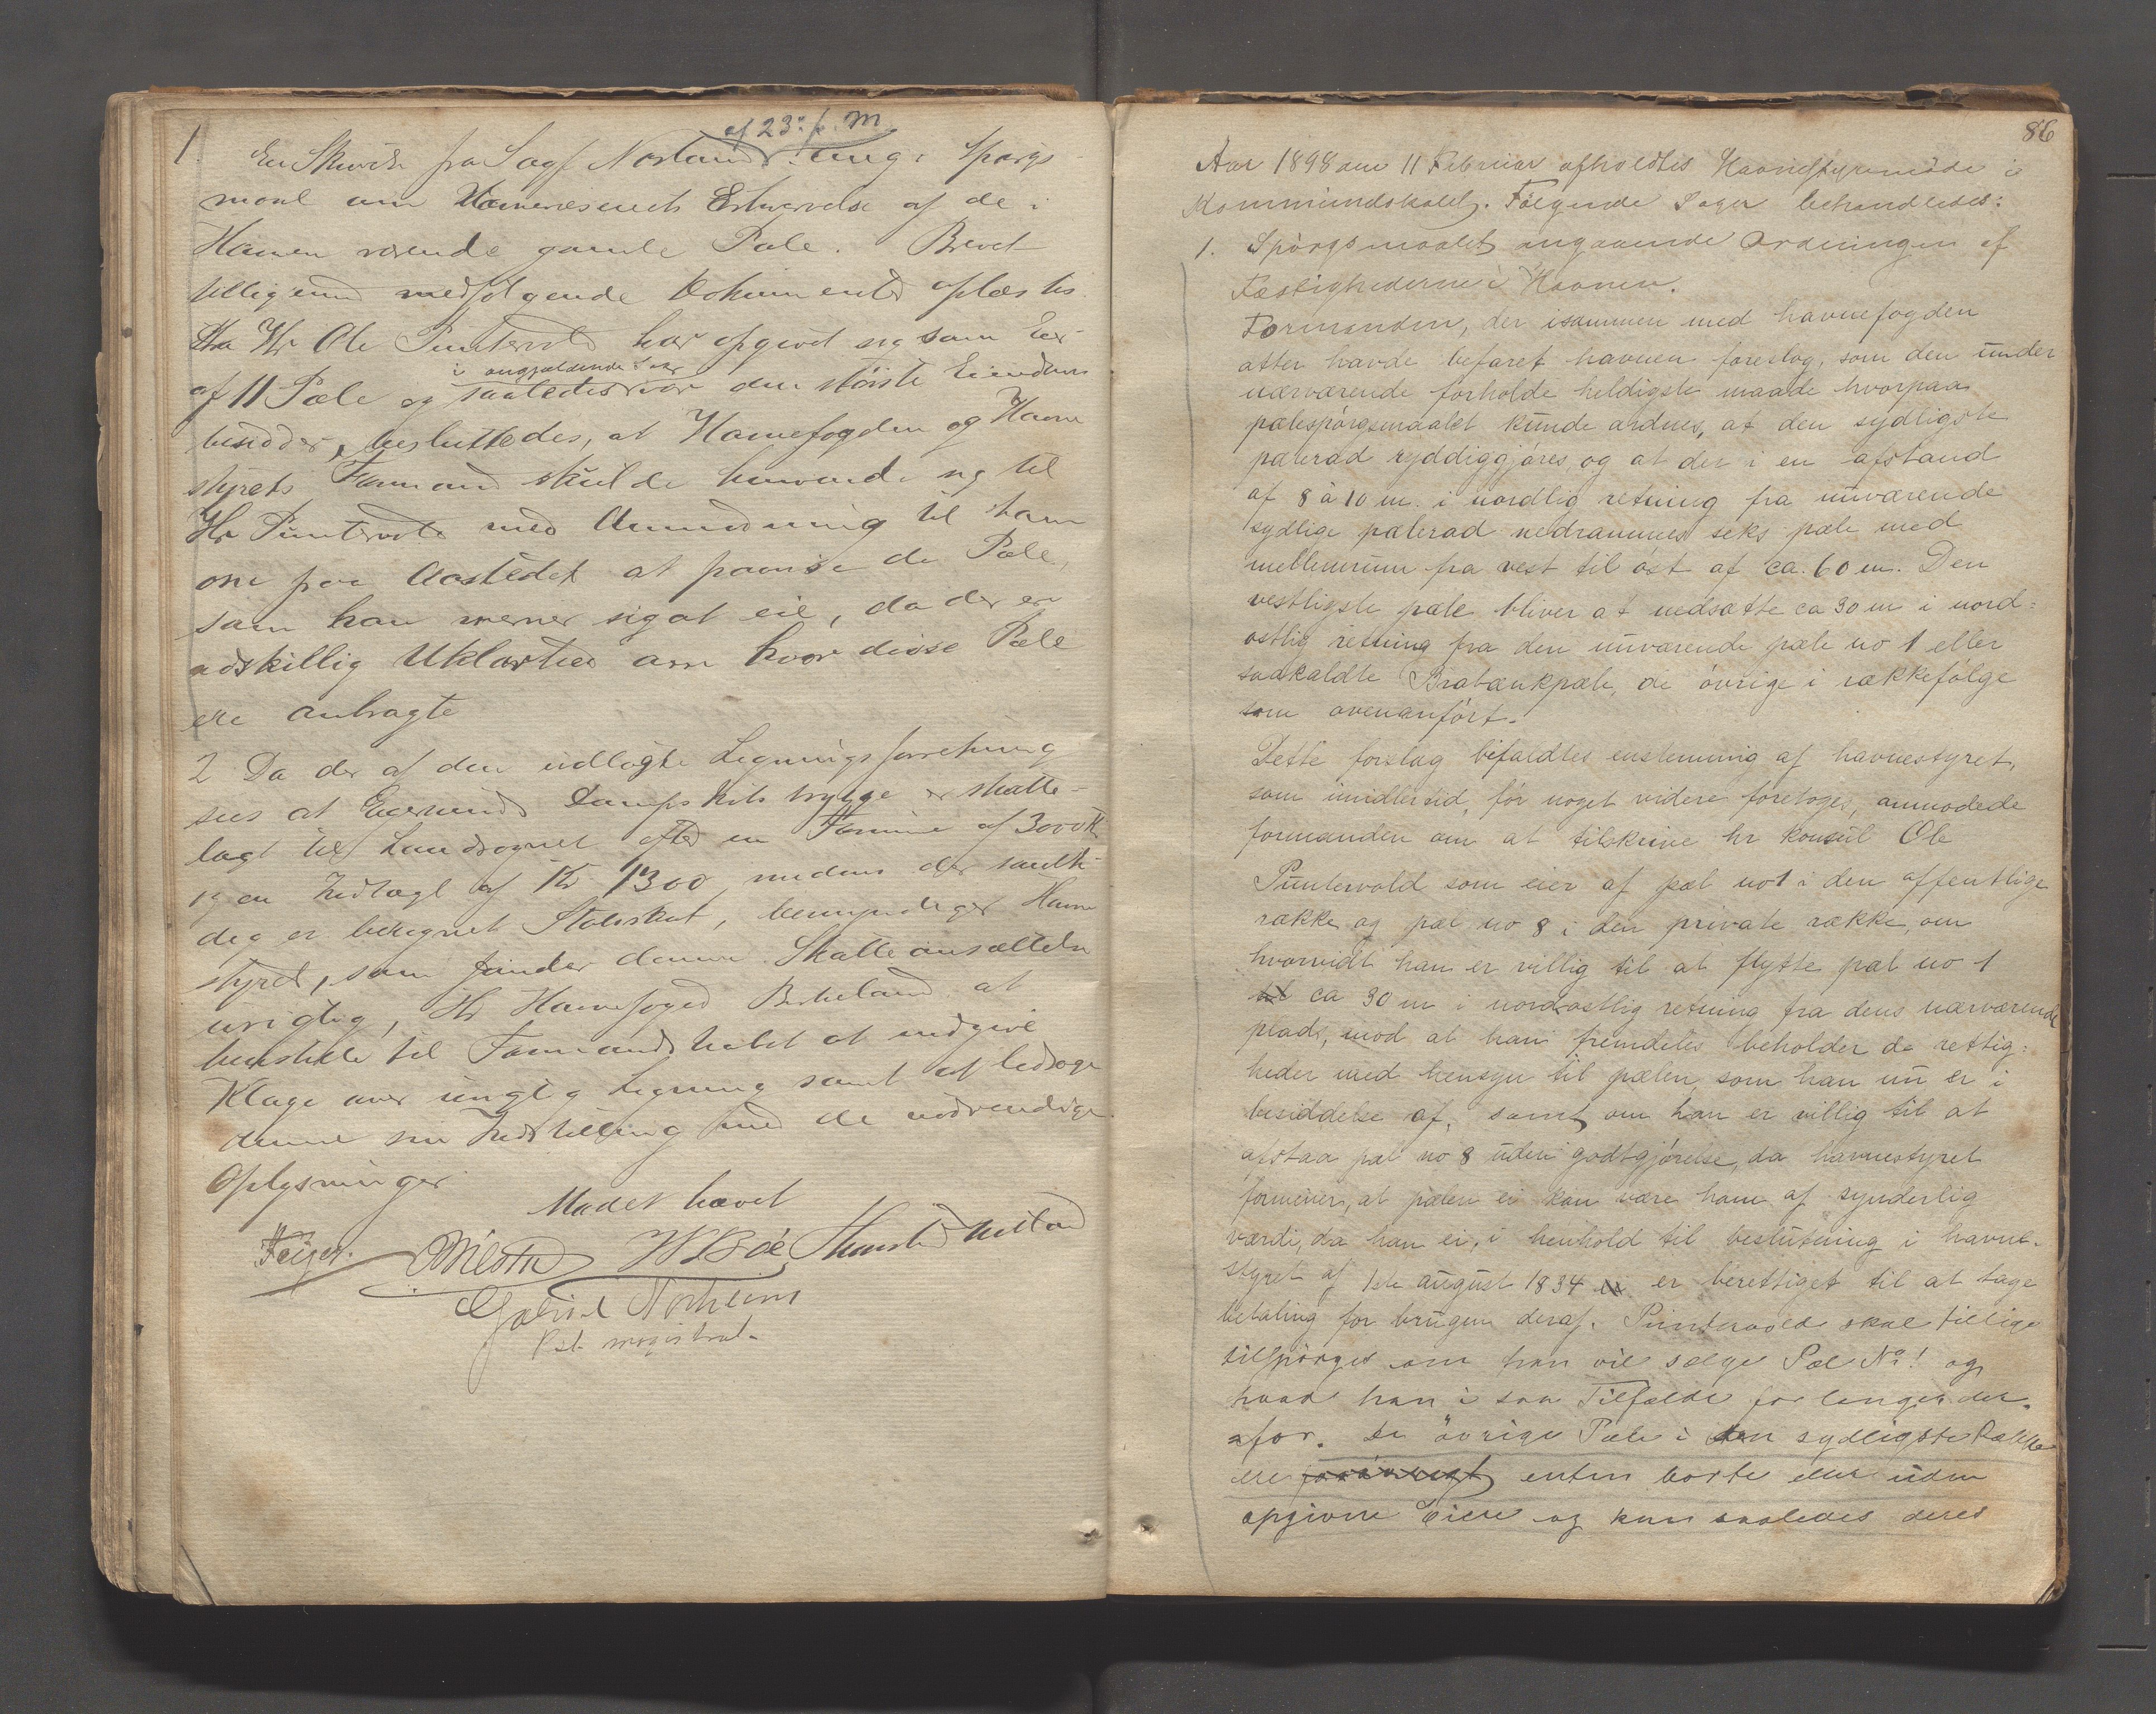 af 23. f. M.
1. En Skrivelse fra Sagf Norland ang. Spørgs
maal om Havnevæsenets Erhvervelse af de i
Havnen værende gamle Pæle. Brevet
tilligemed medfølgende Dokumenter oplæstes.
Da Hr Ole Puntervold har opgivet sig som Eier
i angjældende Sag
af 11 Pæle og saaledes var den störste Eiendoms
besidder, besluttedes, at Havnefogden og Havne
styrets Formand skulde henvende sig til
Hr Puntervold med Anmodning til ham
om paa Aastedet at paavise de Pæle,
som han mener sig at eie, da der er
adskillig Uklarhed om hvor disse Pæle
ere anbragte
2 Da der af den udlagte Ligningsforretning
sees at Egersunds Dampskibsbrygge er skatte-
lagt til Landsognet efter en Formue af 3000 Kr
og en Indtægt af Kr 1300, medens der samti-
dig er beregnet Skat, bemyndiger Havne
styret, som finder denne Skatteansættelse
urigtig, Hr Havnefoged Birkeland at
henstille til Formandskabet at indgive
Klage over urigtig Ligning samt at ledsage
denne sin Indstilling med de nødvendige
Oplysninger
Mødet hævet
Feiger. W Böe
Gabriel
Pst. magistrat.
86
Aar 1898 den 11 Februar afholdtes Havnestyremöde i
Kommunelokalet. Fölgende Sager behandledes:
1. Spörgsmaalet angaaende Ordningen af
Fæstighederne i Havnen.
Formanden, der isammen med havnefogden
atter havde befaret havnen foreslog, som den under
nærværende forholde heldigste maade hvorpaa
pælespörgsmaalet kunde ordnes, at den sydligste
pælerad ryddiggjöres, og at der i en afstand
af 8 à 10 m. i nordlig retning fra nuværende
sydlige pælerad nedrammes seks pæle med
mellemrum fra vest til öst af ca. 60 m. Den
vestligste pæle bliver at nedsætte ca 30 m i nord-
ostlig retning fra den nuværende pæle no 1 eller
saakaldte Brabænkpæle, de övrige i rækkefölge
som ovenanfört.
Dette forslag bifaldtes enstemmig af havnestyret,
som imidlertid, för noget videre foretoges, anmodede
formanden om at tilskrive hr konsul Ole
Puntervold som eier af pæl no 1 i den offentlige
række og pæl no 8 i den private række, om
hvorvidt han er villig til at flytte pæl no 1
til ca 30 m i nordostlig retning fra dens nærværende
plads, mod at han fremdeles beholder de rettig-
heder med hensyn til pælen, som han nu er i
besiddelse af, samt om han er villig til at
afstaa pæl no 8 uden godtgjörelse, da havnestyret
formener, at pælen ei kan være ham af synderlig
værdi, da han ei, i henhold til beslutning i havne-
styret af 1ste august 1834 er berettiget til at tage
betaling for brugen deraf. Puntervold skal tillige
tilspörges om han vil sælge Pæl No 1 og
hvad han i saa Tilfælde forlanger der-
for. De övrige Pæle i den sydligste Række
ere forövrigt enten borte eller uden
opgivne Eiere og kan saaledes deres